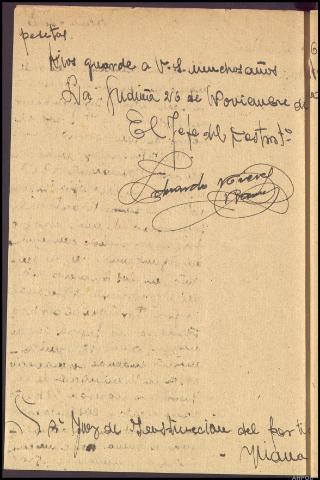 pesetas.
Dios guarde a V. S. muchos años
La Gudiña 26 de Noviembre de
El Jefe del Destº
Eduardo
Sr. Juez de Instrucción del parti
Viana